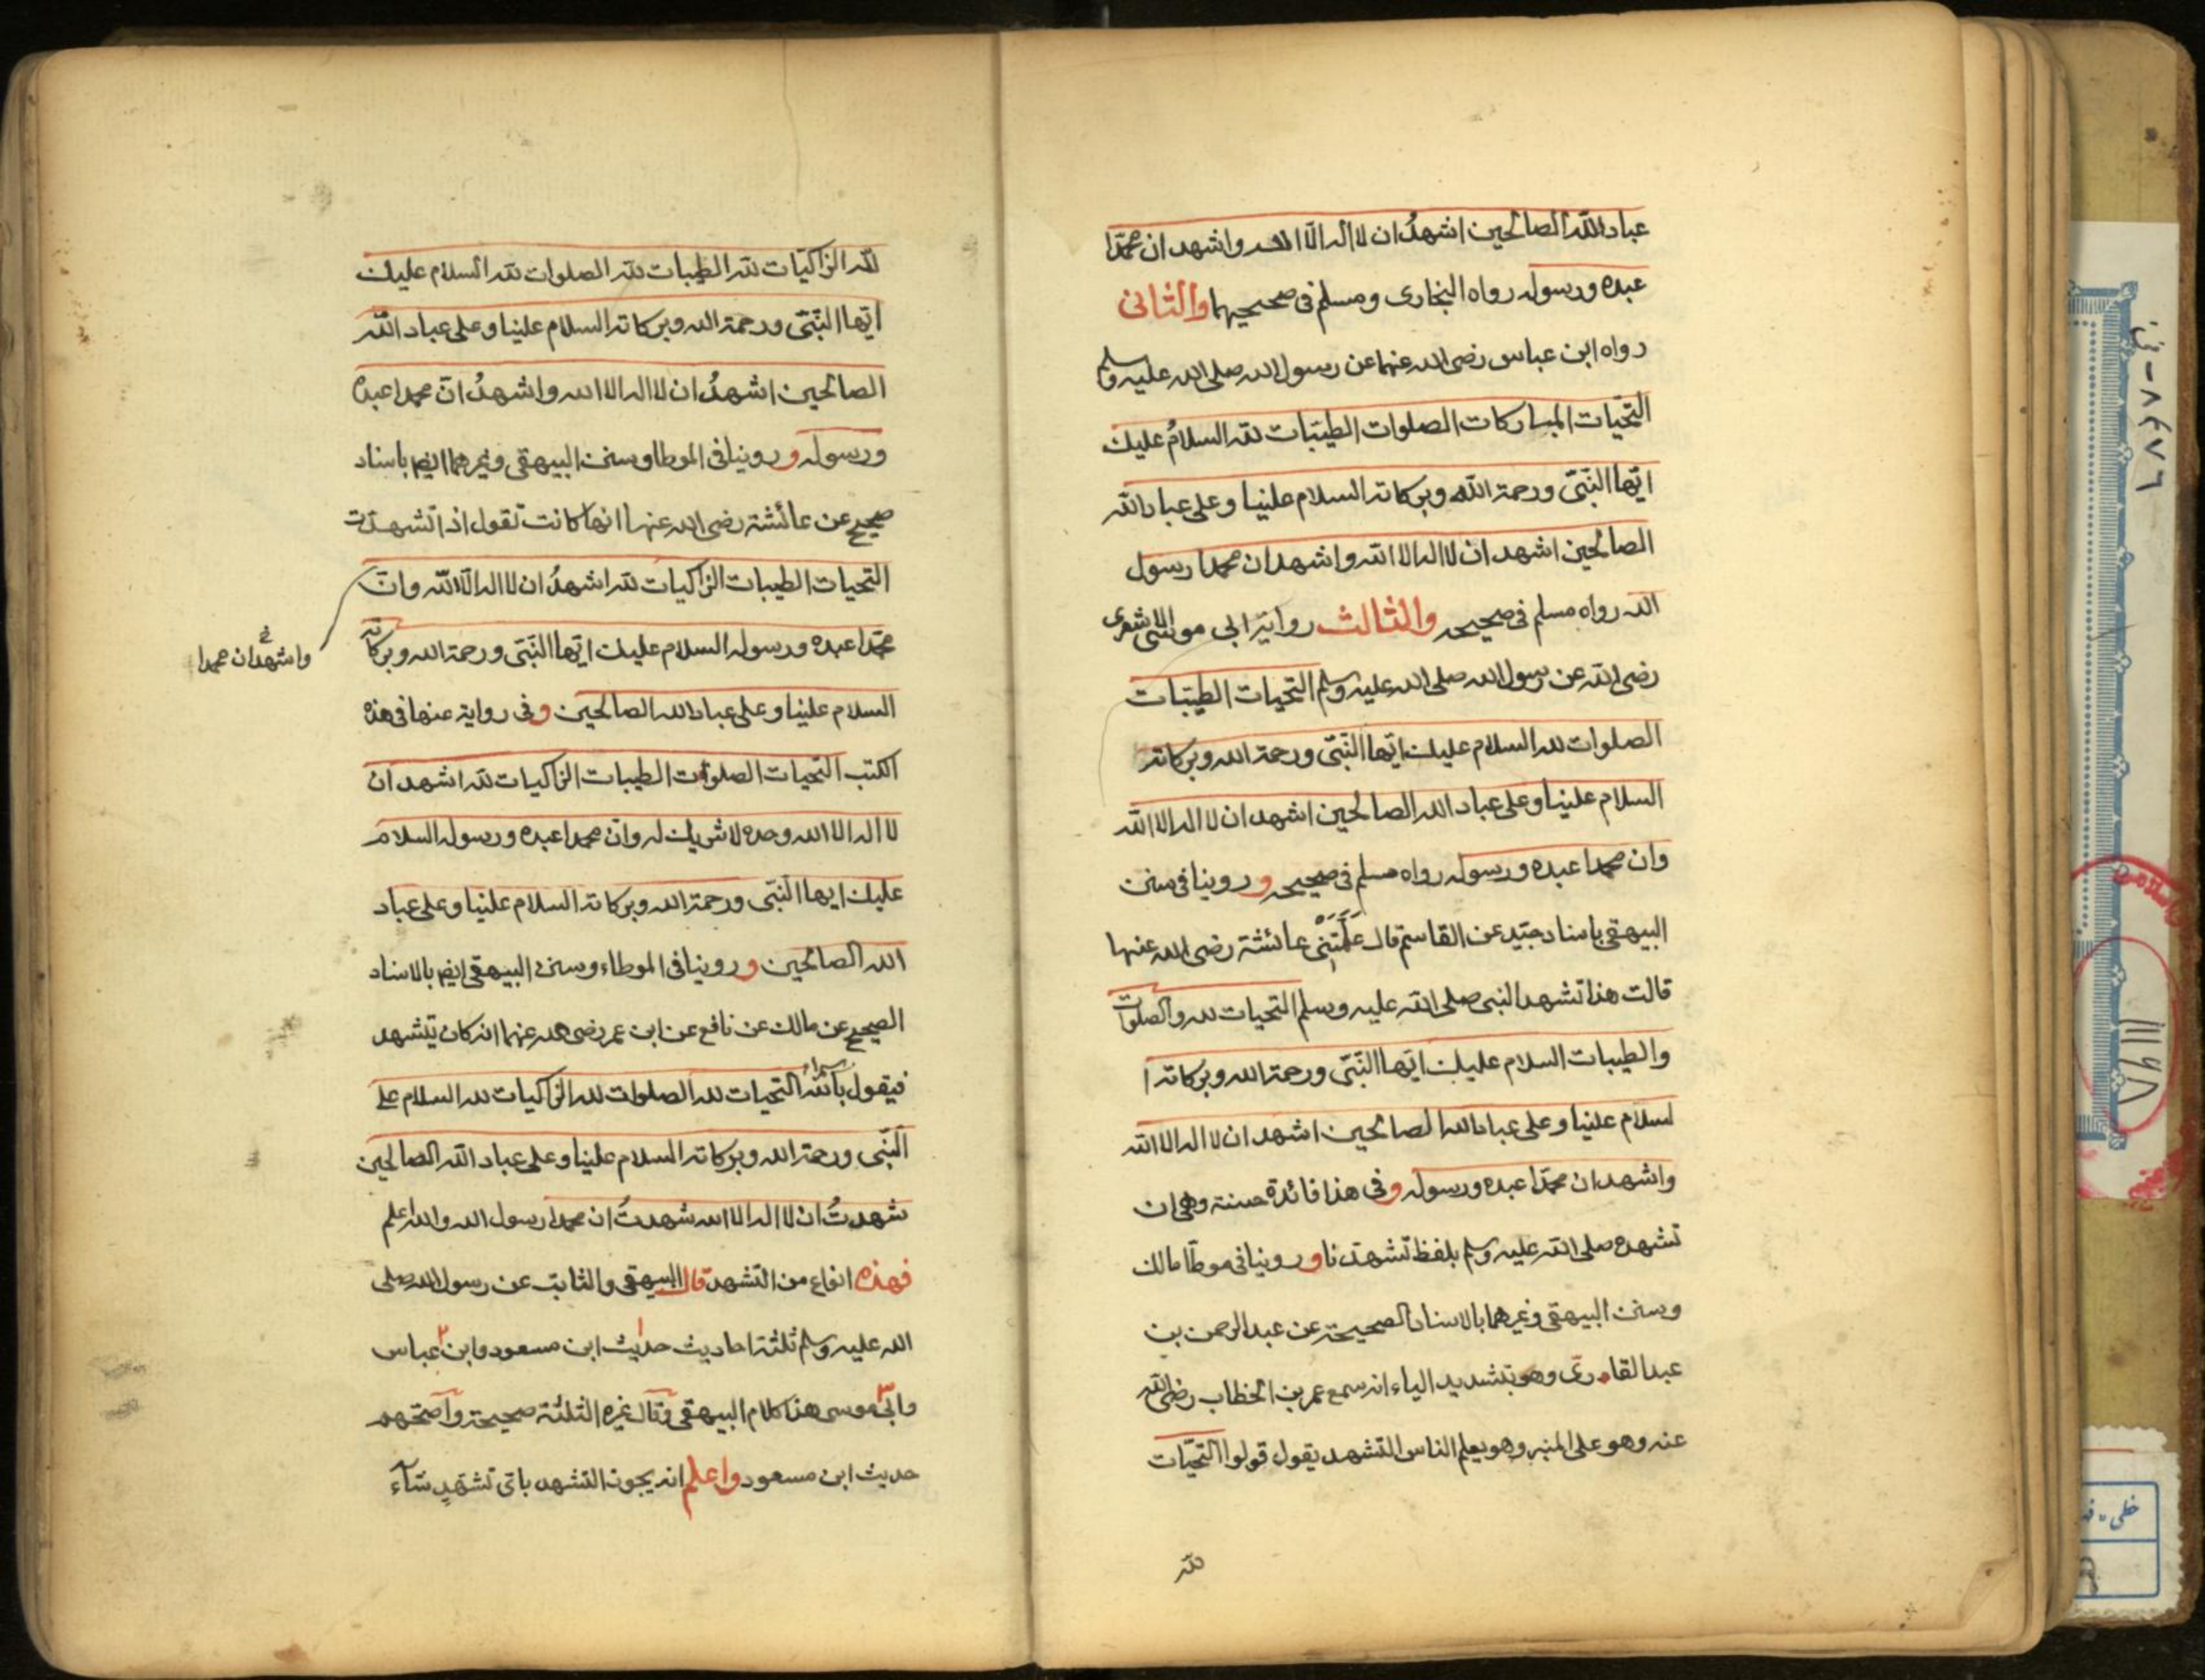 عباد الله الصالحين اشهدُ ان لا اله الّا الله واشهد ان محمّدا
عبده ورسوله رواه البخارى ومسلم فى صحيحيهما والثانى
رواه ابن عباس رضى الله عنهما عن رسول الله صلى الله عليه وسلم
التحّيات المباركات الصلوات الطيّبات لله السلامُ عليك
ايّها النّبىّ ورحمة الله وبركاته السلام علينا وعلى عباد الله
الصالحين اشهد ان لا اله الا الله واشهد ان محمدا رسول
الله رواه مسلم فى صحيحه والثالث رواية ابى موسى الاشعرى
رضى الله عن رسول الله صلى الله عليه وسلم التحيات الطيّبات
الصلوات لله السلام عليك ايّها النّبىّ ورحمة الله وبركاته
السلام علينا وعلى عباد الله الصالحين اشهد ان لا اله الا الله
وان محمدا عبده ورسوله رواه مسلم فى صحيحه وروينا فى سنن
البيهقى باسناد جيّد عن القاسم قال عَلَّمَتْنى عائشة رضى الله عنها
قالت هذا تشهد النبى صلى الله عليه وسلم التحيات لله والصلوات
والطيبات السلام عليك ايّها النّبىّ ورحمة الله وبركاته ا
لسلام علينا وعلى عباد الله الصالحين اشهد ان لا اله الا الله
واشهد ان محمّدا عبده ورسوله وفى هذا فائدة حسنة وهى ان
تشهده صلى الله عليه وسلم بلفظ تشهدنا وروينا فى موطّا مالك
وسنن البيهقى وغيرهما بالاسناد الصحيحة عن عبد الرحمن بن
عبد القارىّ وهو بتشديد الياء انه سمع عمر بن الخطاب رضى الله
عنه وهو على المنبر وهو يعلم الناس التشهد يقول قولوا التحيّات
لله
لله الزاكيات لله الطيبات لله الصلوات لله السلام عليك
ايّها النّبىّ ورحمة الله وبركاته السلام علينا وعلى عباد الله
الصالحين اشهدُ ان لا اله الا الله واشهدُ انّ محمدا عبده
ورسوله وروينا فى الموطا وسنن البيهقى وغيرهما ايضا باسناد
صحيح عن عائشة رضى الله عنها انها كانت تقول اذا تشهدت
التحيات الطيبات الزاكيات لله اشهدُ ان لا اله الّا الله وانّ
واشهد ان محمدا
محمّدا عبده ورسوله السلام عليك ايّها النّبىّ ورحمة الله وبركاته
السلام علينا وعلى عباد الله الصالحين وفى رواية عنها فى هذه
الكتب التحيات الصلوات الطيبات الزاكيات لله اشهد ان
لا اله الا الله وحده لا شريك له وانّ محمدا عبده ورسوله السلام
عليك ايها النّبى ورحمة الله وبركاته السلام علينا وعلى عباد
الله الصالحين وروينا فى الموطاء وسنن البيهقى ايضا بالاسناد
الصحيح عن مالك عن نافع عن ابن عمر رضى الله عنهما انه كان يتشهد
فيقول بسم الله التحيات لله الصلوات لله الزاكيات لله السلام على
النّبى ورحمة الله وبركاته السلام علينا وعلى عباد الله الصالحين
شهدتُ ان لا اله الا الله شهدتُ ان محمدا رسول الله والله اعلم
فهذه انواع من التشهد قال البيهقى والثابت عن رسول الله صلى
الله عليه وسلم ثلثة احاديث حديث ابن مسعود وابن عباس
وابى موسى هذا كلام البيهقى وقال غيره الثلثة صحيحة واصحّهم
حديث ابن مسعود واعلم انه يجوز التشهد باىّ تشهّدٍ شآء
٨٤٧٦ - ف
١١١٤٨
خطى